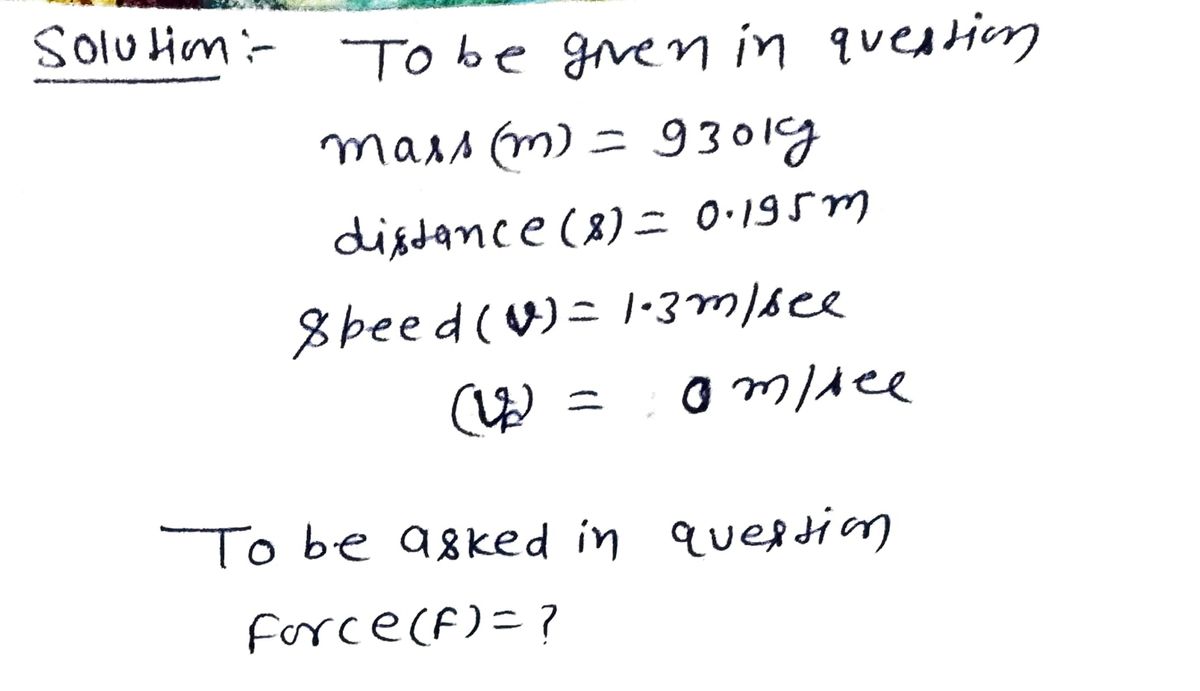 Solution :- To be given in question
mass (m) = 930kg
distance (s) = 0.195m
speed (v) = 1.3m/sec
= 0 m/sec
To be asked in question
Force (F) = ?